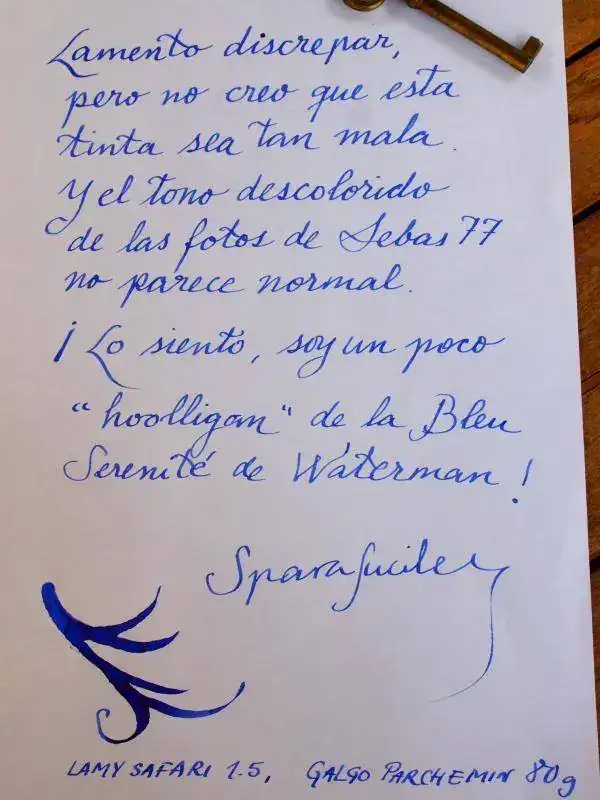 Lamento discrepar,
pero no creo que esta
tinta sea tan mala.
Y el tono descolorido
de las fotos de Sebas77
no parece normal.
¡Lo siento, soy un poco
"hoolligan" de la Bleu
Serenité de Wáterman!
Sparafucile
LAMY SAFARI 1.5, GALGO PARCHEMIN 80g